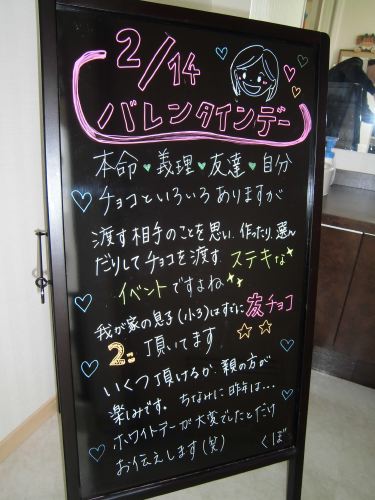 2/14
バレンタインデー
本命♥義理♥友達♥自分
チョコといろいろありますが
渡す相手のことを思い、作ったり、選ん
だりしてチョコを渡す ステキな
イベントですよね
我が家の息子(小3)はすでに友チョコ
2コ 頂いてます ☆☆
いくつ頂けるか、親の方が
楽しみです。ちなみに昨年は…
ホワイトデーが大変でしたとだけ
お伝えします(笑) くぼ